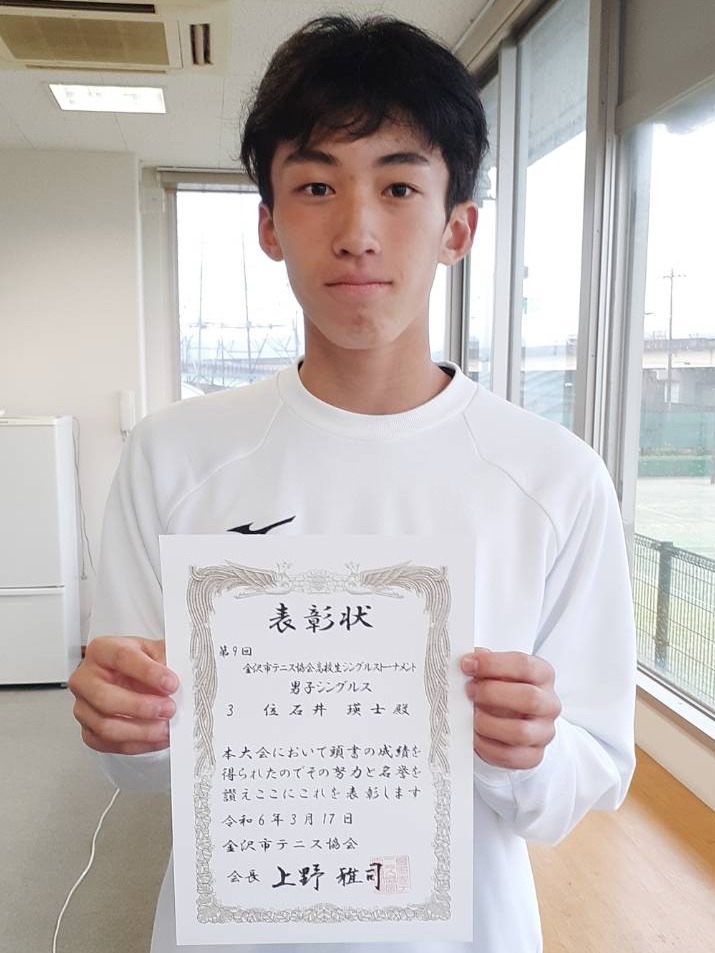 表彰状
第9回
金沢市テニス協会高校生シングルストーナメント
男子シングルス
3 位 石井 瑛士 殿
本大会において頭書の成績を
得られたのでその努力と名誉を
讃えここにこれを表彰します
令和6年3月17日
金沢市テニス協会
会長 上野 雅司